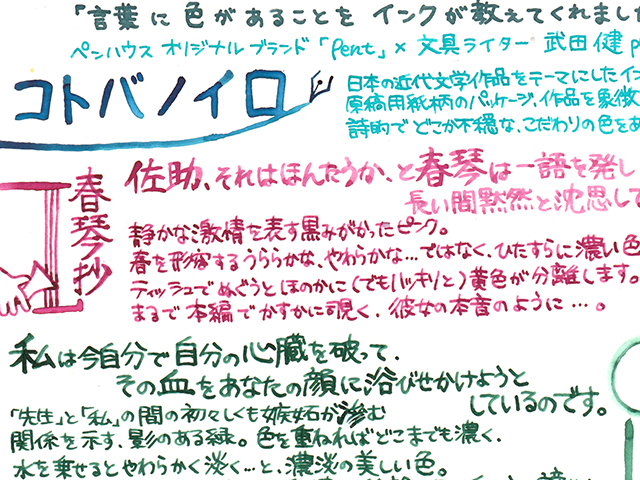 「言葉に色があることをインクが教えてくれまし
ペンハウス オリジナルブランド「Pent」× 文具ライター 武田健 p
コトバノイロ
日本の近代文学作品をテーマにしたイ
原稿用紙柄のパッケージ、作品を象徴
詩的でどこか不穏な、こだわりの色をあ
春琴抄
佐助、それはほんたうか、と春琴は一語を発し
長い間黙然と沈思して
静かな激情を表す黒みがかったピンク。
春を形容するうららかな、やわらかな…ではなく、ひたすらに濃い色
ティッシュでぬぐうとほのかに(でもハッキリと)黄色が分離します。
まるで本編でかすかに覗く、彼女の本音のように…。
私は今自分で自分の心臓を破って、
その血をあなたの顔に浴びせかけようと
しているのです。
「先生」と「私」の間の初々しくも嫉妬が滲む
関係を示す、影のある緑。色を重ねればどこまでも濃く、
水を乗せるとやわらかく淡く…と、濃淡の美しい色。